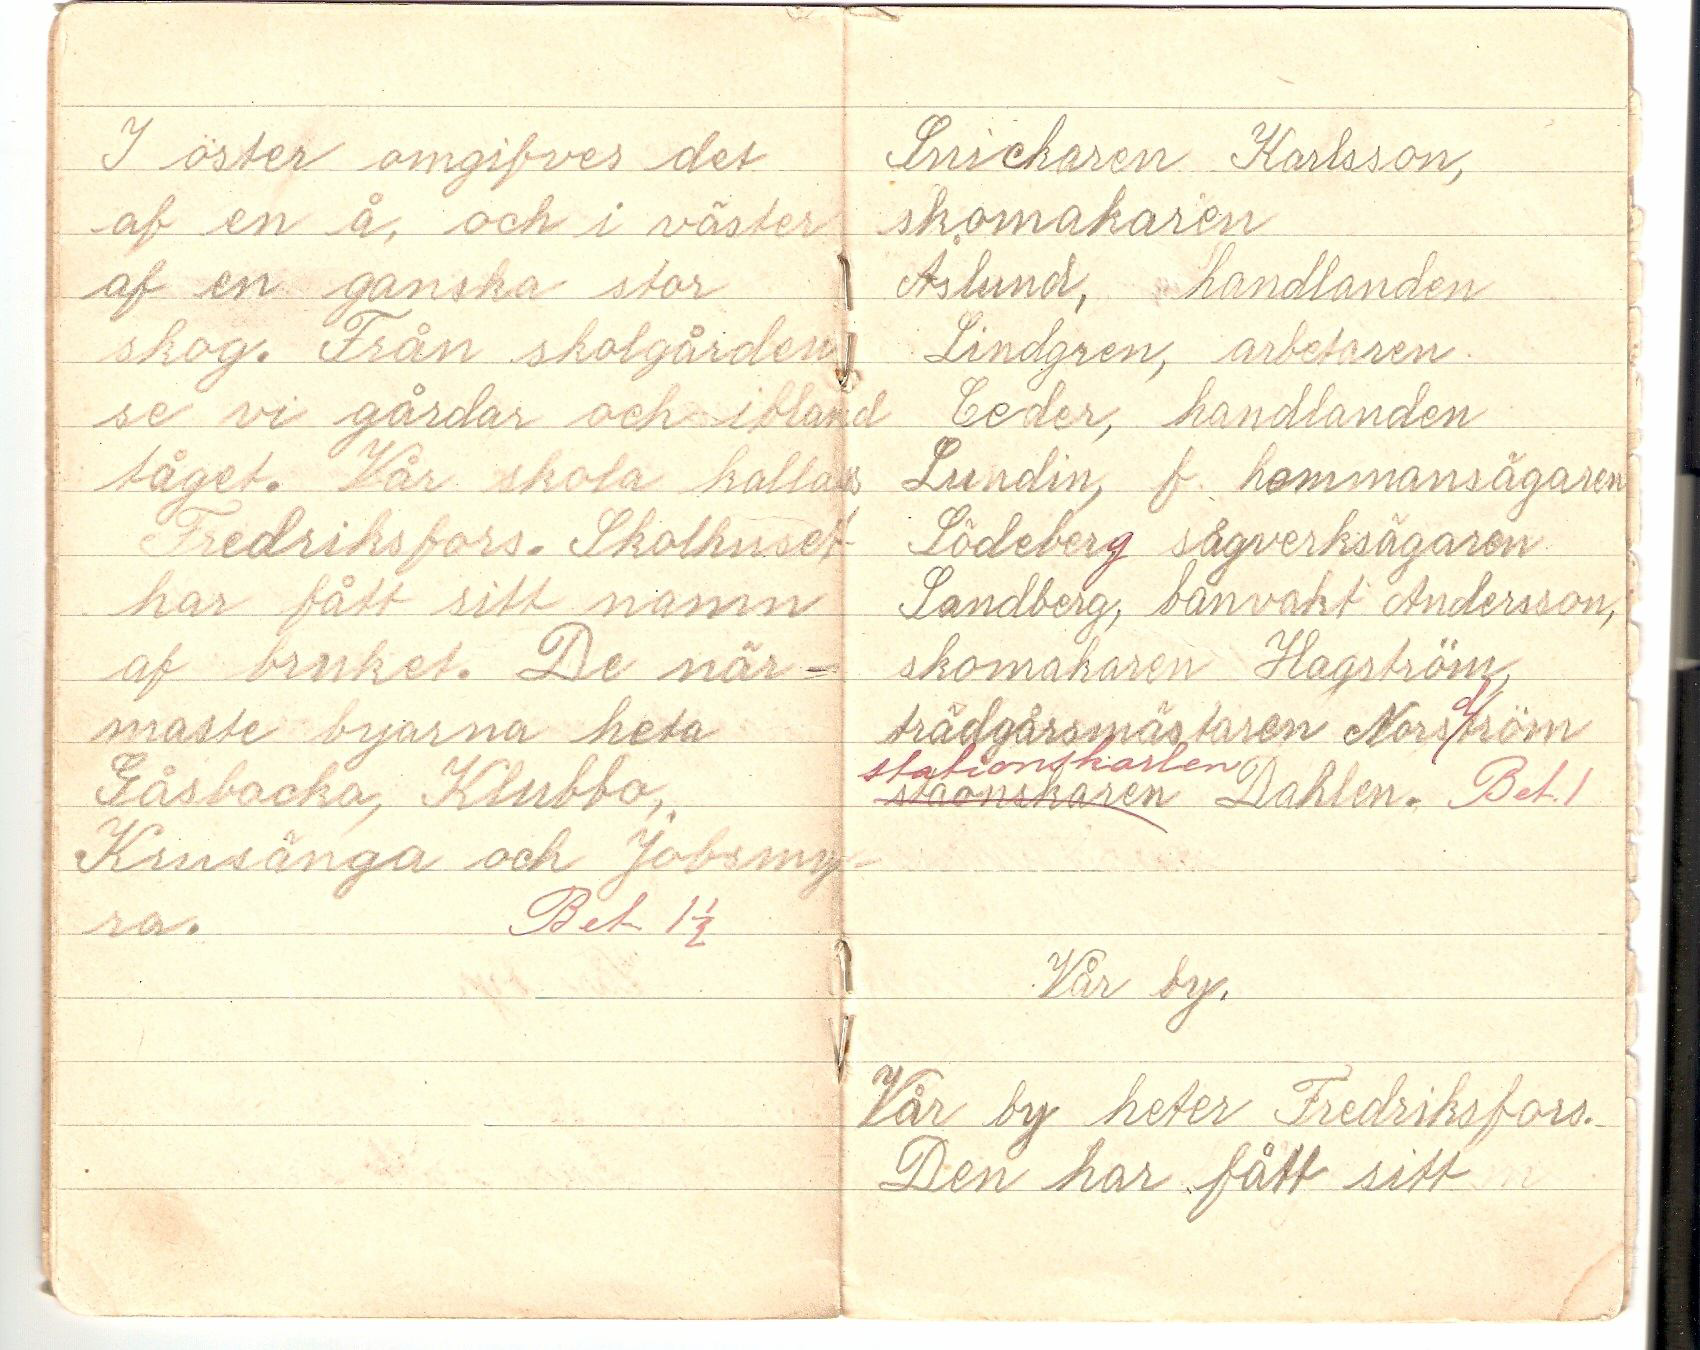 I öster omgifves det
af en å, och i väster
af en ganska stor
skog. Från skolgården
se vi gårdar och ibland
tåget. Vår skola kallas
Fredriksfors. Skolhuset
har fått sitt namn
af bruket. De när=
maste byarna heta
Gåsbacka, Klubbo,
Krusänga och Jobsmy-
ra. Bet 1½
Snickaren Karlsson,
skomakaren
Åslund, handlanden
Lindgren, arbetaren
Ceder, handlanden
Lundin, f. hemmansägaren
Södeberg sågverksägaren
Sandberg, banvakt Andersson,
skomakaren Hagström,
d
trädgårsmästaren Norström
stationskarlen
staonskaren Dahlen. Bet. 1
Vår by.
Vår by heter Fredriksfors.
Den har fått sitt